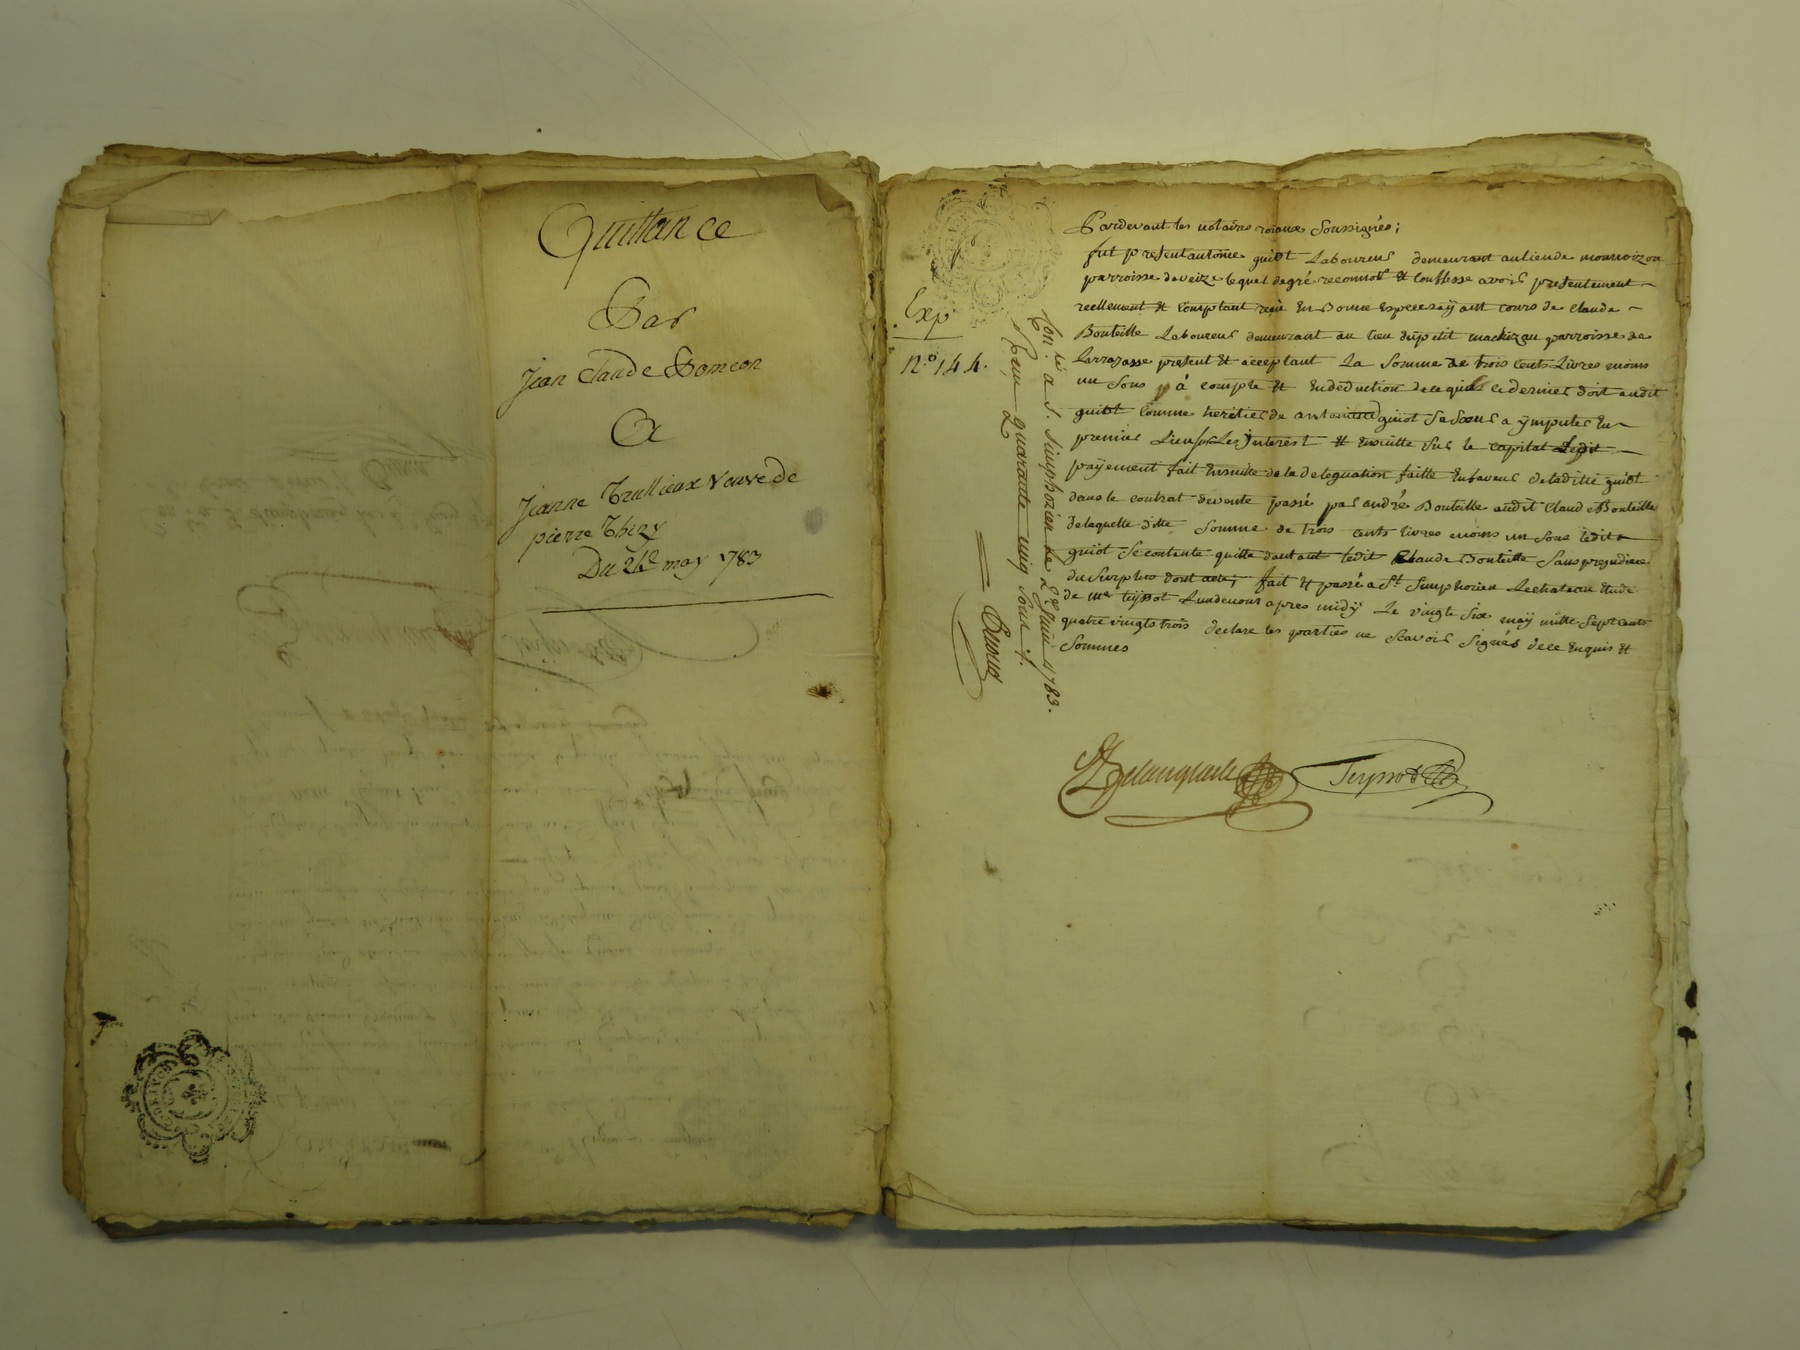 Quittance
Par
Jean Claude Poncon
A
Jeanne Trullieux veuve de
pierre Thizy
Du 26 may 1783
Exp
n.o 144.
Con. lé a S. Simphorien le 2e juin 1783.
Reçu quarante cinq sous f.
Pardevant les notaires roiaux soussignés;
fut present antoine guiot Laboureur demeurant au lieu de
parroisse deveize lequel degré reconnoit & conffesse avoir presentement
reellement & comptant reçu en Bonne Especes aÿant cours de claude
Bouteille Laboureur demeurant au lieu du petit parroisse de
Larrajasse present & acceptant La somme de trois cents Livres moins
un sous à compte & en deduction dece que ce dernier doit audit
guiot comme heritier de guiot sa sœur a ÿmputer En
premier Lieu sur Les interest & ensuitte sur le capital Ledit
païement fait Ensuitte de la deleguation faitte En faveur de laditte guiot
dans le contrat devente passé par andré Bouteille audit Claude Bouteille
delaquelle ditte somme de trois cents livres moins un sous ledit
guiot se contente quitte dautant ledit Claude Bouteille Sans prejudice
du surplus dont acte; fait & passé a St. Simphorien Lechateau Etude
de me teÿssot Lundenous apres midÿ Le vingt six maÿ mille sept cents
quatre vingts trois declare les parties ne scavoir signés dece Enquis &
sommes
Delanglade Teyssot